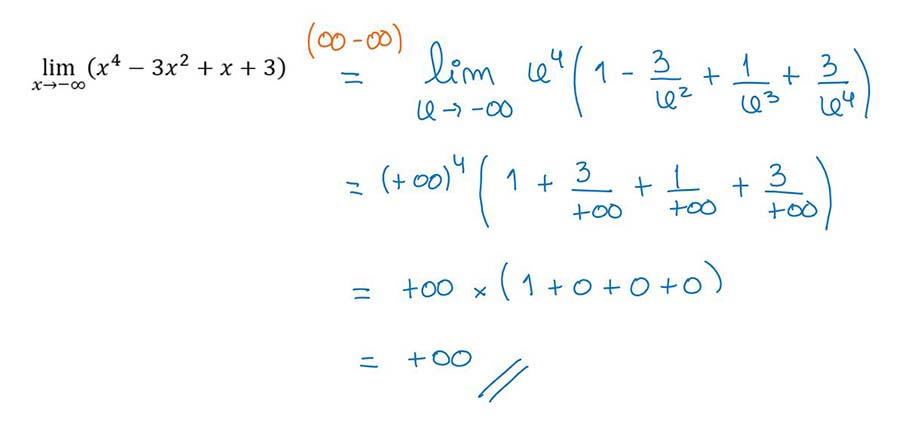 lim x→−∞ (x⁴ − 3x² + x + 3) (∞ - ∞) = lim x→-∞ x⁴(1 - 3/x² + 1/x³ + 3/x⁴)
= (+∞)⁴(1 + 3/+∞ + 1/+∞ + 3/+∞)
= +∞ × (1 + 0 + 0 + 0)
= +∞ //